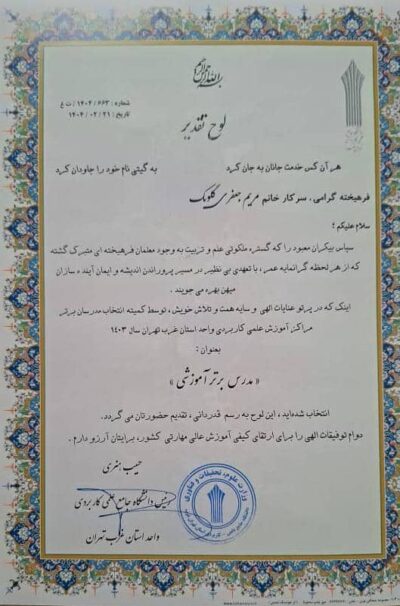 بسم الله الرحمن الرحیم
شماره : ۶۶۳ / ۱۴۰۴ / ت غ
تاریخ : ۲۱ / ۰۲ / ۱۴۰۴
لوح تقدیر
هر آن کس خدمت جانان به جان کرد    به گیتی نام خود را جاودان کرد
فرهیخته گرامی، سرکار خانم مریم جعفری گلوبک
سلام علیکم ؛
سپاس بیکران معبود را که گستره ملکوتی علم و تربیت به وجود معلمان فرهیخته ای متبرک گشته
که از هر لحظه گرانمایه عمر، با تعهدی بی نظیر در مسیر پروراندن اندیشه و ایمان آینده سازان
میهن بهره می جویند .
اینک که در پرتو عنایات الهی و سایه همت و تلاش خویش، توسط کمیته انتخاب مدرسان برتر
مراکز آموزش علمی کاربردی واحد استان غرب تهران سال ۱۴۰۳
بعنوان :
« مدرس برتر آموزشی »
انتخاب شده‌اید ، این لوح به رسم قدردانی ، تقدیم حضورتان می گردد.
دوام توفیقات الهی را برای ارتقای کیفی آموزش عالی مهارتی کشور، برایتان آرزو دارم .
حبیب هنری
رئیس دانشگاه جامع علمی کاربردی
واحد استان غرب تهران
وزارت علوم، تحقیقات و فناوری